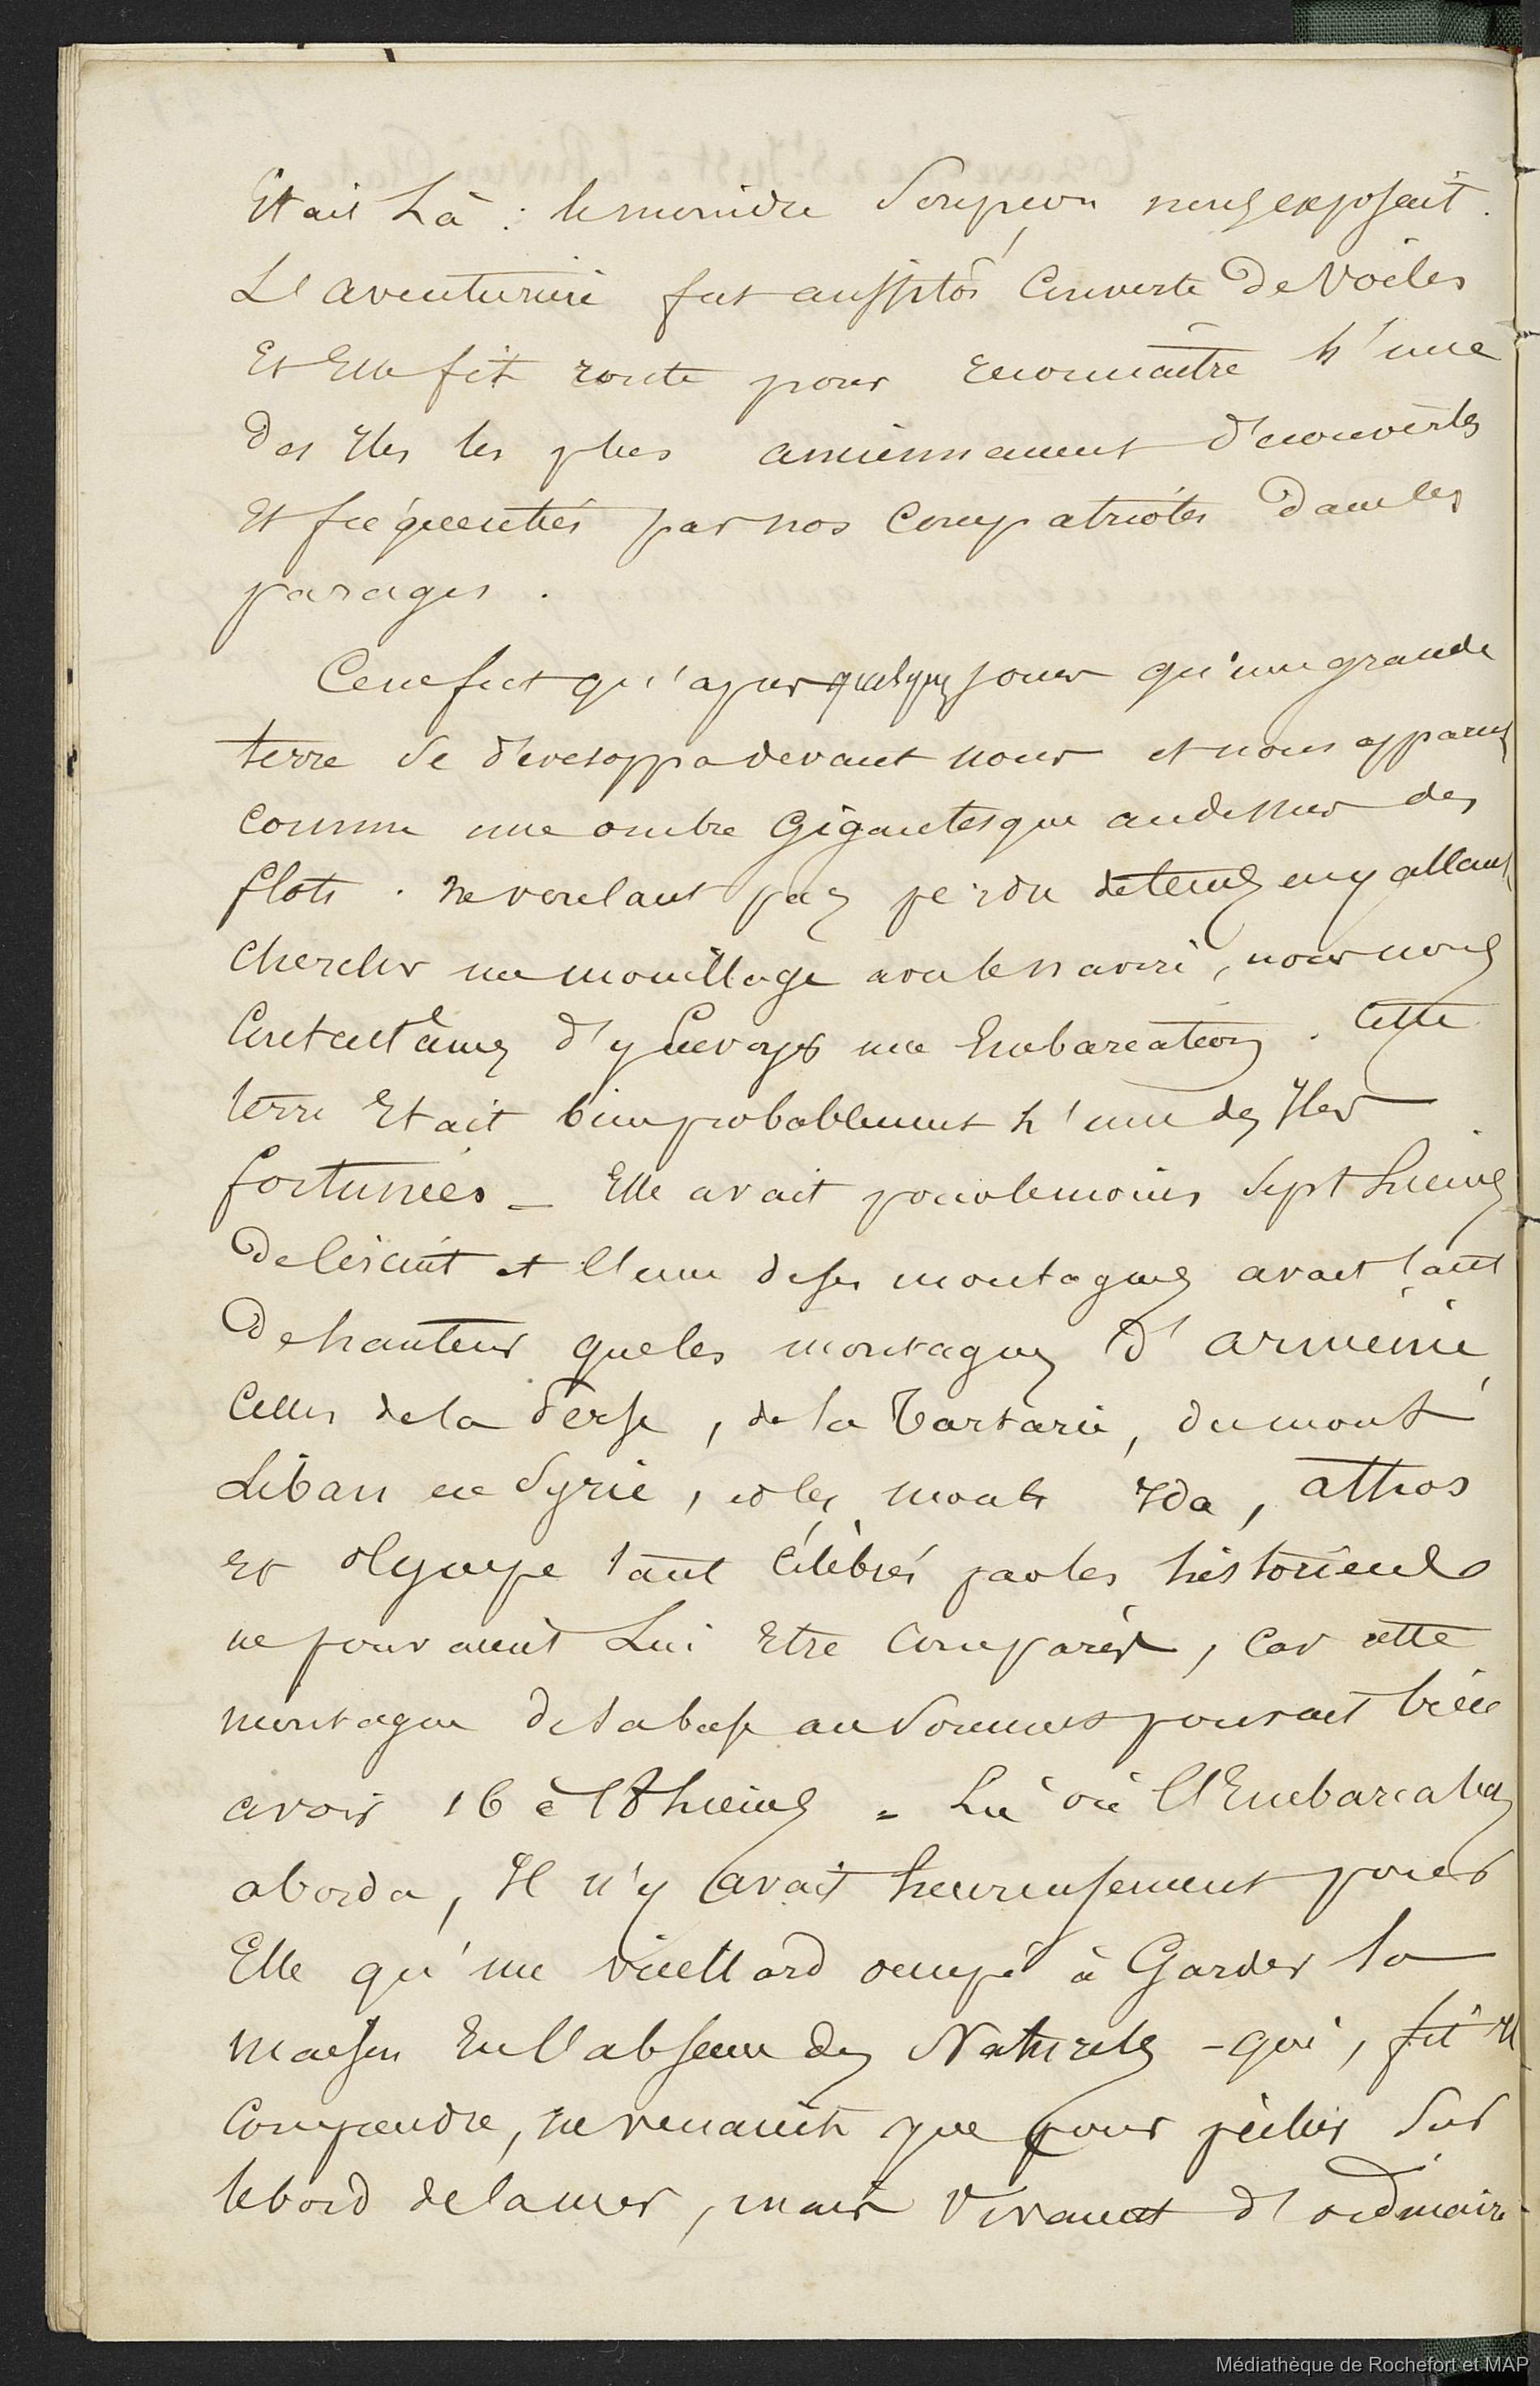 Etait Là : le moindre Soupçon nous exposait.
L'aventurière fut aussitôt Couverte De Voiles
Et Elle fit route pour reconnaitre L'une
Des Iles les plus anciennement Découvertes
Et fréquentées par nos Compatriotes Dans les
parages.
Ce ne fut qu'après quelques jours qu'une grande
terre se développa devant nous et nous apparut
comme une ombre Gigantesque au dessus des
flots. Ne voulant pas perdre de temps en y allant
Chercher un mouillage avec le navire, nous nous
Contentâmes d'y Envoyer une Embarcation. Cette
terre Etait bien probablement L'une des Iles
fortunées _ Elle avait pour le moins Sept Lieues
De circuit et l'une de ses montagnes avait tant
De hauteur que les montagnes D'armenie,
Celles de la Perse, de la Tartarie, du mont
Liban en Syrie, et les monts Ida, athos
Et olympe tant célèbrés par les historiens
ne pouvaient Lui Etre Comparés, Car cette
montagne de sa base au Sommet pouvait bien
avoir 16 à 18 Lieues = Là où l'Embarcation
aborda, Il n'y avait heureusement pour
Elle qu'un vieillard occupé à Garder la
maison En l'absence des Naturels - qui, fit-il
Comprendre, ne venaient que pour pêcher Sur
le bord de la mer, mais Vivant d'ordinaire
Médiathèque de Rochefort et MAP